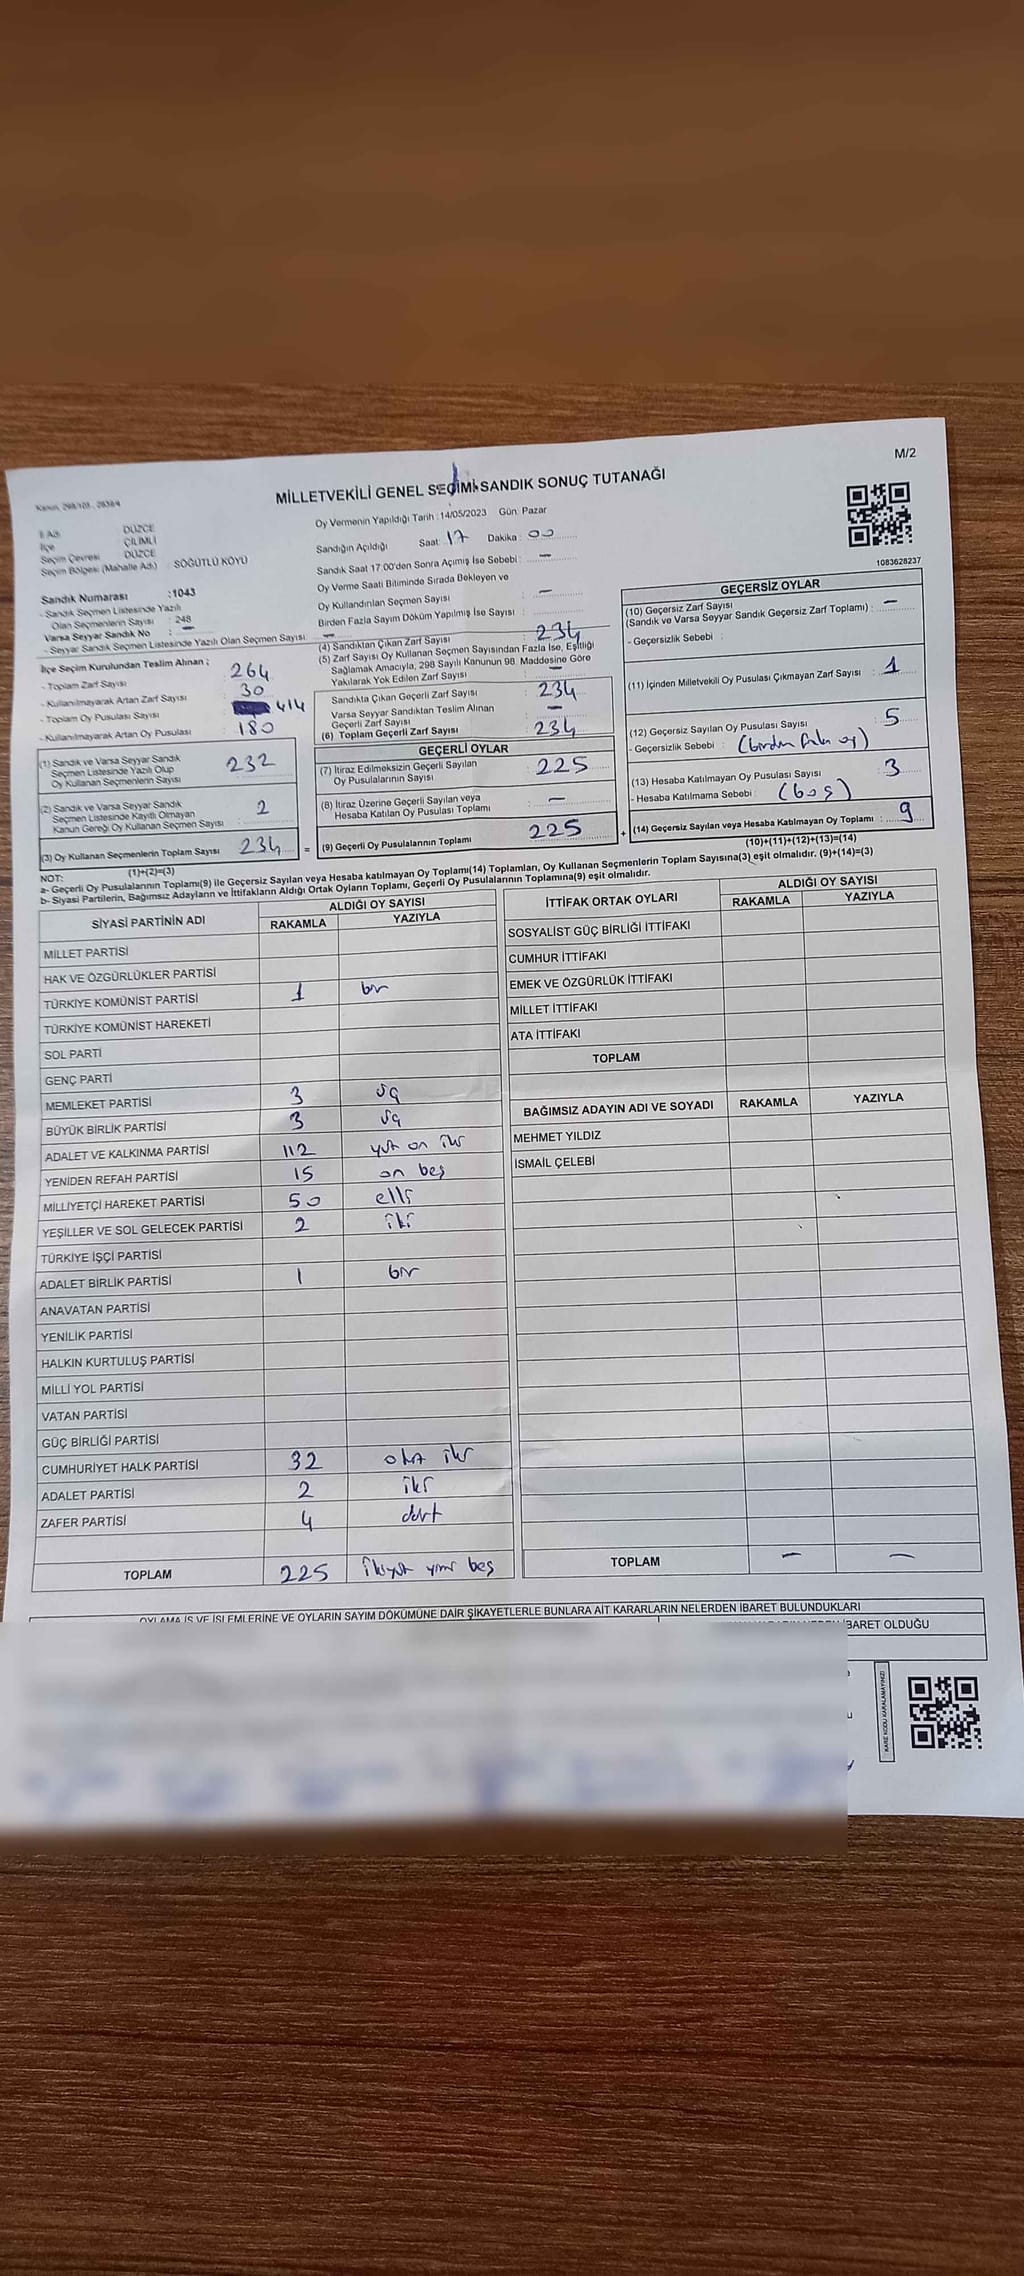 M/2
MİLLETVEKİLİ GENEL SEÇİMİ SANDIK SONUÇ TUTANAĞI
1083628237
İl Adı DÜZCE
İlçe ÇİLİMLİ
Seçim Çevresi DÜZCE
Seçim Bölgesi (Mahalle Adı) : SÖĞÜTLÜ KÖYÜ
Sandık Numarası :1043
- Sandık Seçmen Listesinde Yazılı
Olan Seçmenlerin Sayısı : 248
Varsa Seyyar Sandık No : —
- Seyyar Sandık Seçmen Listesinde Yazılı Olan Seçmen Sayısı: —
Oy Vermenin Yapıldığı Tarih : 14/05/2023 Gün: Pazar
Sandığın Açıldığı Saat: 17 Dakika : 00
Sandık Saat 17:00'den Sonra Açımış İse Sebebi : —
Oy Verme Saati Bitiminde Sırada Bekleyen ve
Oy Kullandırılan Seçmen Sayısı : —
Birden Fazla Sayım Döküm Yapılmış İse Sayısı :
İlçe Seçim Kurulundan Teslim Alınan ;
- Toplam Zarf Sayısı : 264
- Kullanılmayarak Artan Zarf Sayısı : 30
- Toplam Oy Pusulası Sayısı : 414
- Kullanılmayarak Artan Oy Pusulası : 180
(1) Sandık ve Varsa Seyyar Sandık
Seçmen Listesinde Yazılı Olup
Oy Kullanan Seçmenlerin Sayısı 232
(2) Sandık ve Varsa Seyyar Sandık
Seçmen Listesinde Kayıtlı Olmayan
Kanun Gereği Oy Kullanan Seçmen Sayısı 2
(3) Oy Kullanan Seçmenlerin Toplam Sayısı 234
(1)+(2)=(3)
(4) Sandıktan Çıkan Zarf Sayısı : 234
(5) Zarf Sayısı Oy Kullanan Seçmen Sayısından Fazla İse, Eşitliği
Sağlamak Amacıyla, 298 Sayılı Kanunun 98. Maddesine Göre
Yakılarak Yok Edilen Zarf Sayısı : —
Sandıkta Çıkan Geçerli Zarf Sayısı : 234
Varsa Seyyar Sandıktan Teslim Alınan
Geçerli Zarf Sayısı : —
(6) Toplam Geçerli Zarf Sayısı : 234
GEÇERLİ OYLAR
(7) İtiraz Edilmeksizin Geçerli Sayılan
Oy Pusulalarının Sayısı : 225
(8) İtiraz Üzerine Geçerli Sayılan veya
Hesaba Katılan Oy Pusulası Toplamı : —
= (9) Geçerli Oy Pusulalarının Toplamı : 225 +
GEÇERSİZ OYLAR
(10) Geçersiz Zarf Sayısı
(Sandık ve Varsa Seyyar Sandık Geçersiz Zarf Toplamı) : —
- Geçersizlik Sebebi :
(11) İçinden Milletvekili Oy Pusulası Çıkmayan Zarf Sayısı : 1
(12) Geçersiz Sayılan Oy Pusulası Sayısı : 5
- Geçersizlik Sebebi : (birden fazla oy)
(13) Hesaba Katılmayan Oy Pusulası Sayısı : 3
- Hesaba Katılmama Sebebi : (boş)
(14) Geçersiz Sayılan veya Hesaba Katılmayan Oy Toplamı : 9
(10)+(11)+(12)+(13)=(14)
NOT:
a- Geçerli Oy Pusulalarının Toplamı(9) ile Geçersiz Sayılan veya Hesaba katılmayan Oy Toplamı(14) Toplamları, Oy Kullanan Seçmenlerin Toplam Sayısına(3) eşit olmalıdır. (9)+(14)=(3)
b- Siyasi Partilerin, Bağımsız Adayların ve İttifakların Aldığı Ortak Oyların Toplamı, Geçerli Oy Pusulalarının Toplamına(9) eşit olmalıdır.
SİYASİ PARTİNİN ADI ALDIĞI OY SAYISI
RAKAMLA YAZIYLA
MİLLET PARTİSİ
HAK VE ÖZGÜRLÜKLER PARTİSİ
TÜRKİYE KOMÜNİST PARTİSİ 1 bir
TÜRKİYE KOMÜNİST HAREKETİ
SOL PARTİ
GENÇ PARTİ
MEMLEKET PARTİSİ 3 üç
BÜYÜK BİRLİK PARTİSİ 3 üç
ADALET VE KALKINMA PARTİSİ 112 yüz on iki
YENİDEN REFAH PARTİSİ 15 on beş
MİLLİYETÇİ HAREKET PARTİSİ 50 elli
YEŞİLLER VE SOL GELECEK PARTİSİ 2 iki
TÜRKİYE İŞÇİ PARTİSİ
ADALET BİRLİK PARTİSİ 1 bir
ANAVATAN PARTİSİ
YENİLİK PARTİSİ
HALKIN KURTULUŞ PARTİSİ
MİLLİ YOL PARTİSİ
VATAN PARTİSİ
GÜÇ BİRLİĞİ PARTİSİ
CUMHURİYET HALK PARTİSİ 32 otuz iki
ADALET PARTİSİ 2 iki
ZAFER PARTİSİ 4 dört
TOPLAM 225 ikiyüz yirmi beş
İTTİFAK ORTAK OYLARI ALDIĞI OY SAYISI
RAKAMLA YAZIYLA
SOSYALİST GÜÇ BİRLİĞİ İTTİFAKI
CUMHUR İTTİFAKI
EMEK VE ÖZGÜRLÜK İTTİFAKI
MİLLET İTTİFAKI
ATA İTTİFAKI
TOPLAM
BAĞIMSIZ ADAYIN ADI VE SOYADI RAKAMLA YAZIYLA
MEHMET YILDIZ
İSMAİL ÇELEBİ
TOPLAM — —
OYLAMA İŞ VE İŞLEMLERİNE VE OYLARIN SAYIM DÖKÜMÜNE DAİR ŞİKAYETLERLE BUNLARA AİT KARARLARIN NELERDEN İBARET BULUNDUKLARI
İBARET OLDUĞU
KARE KODU KARALAMAYINIZ!